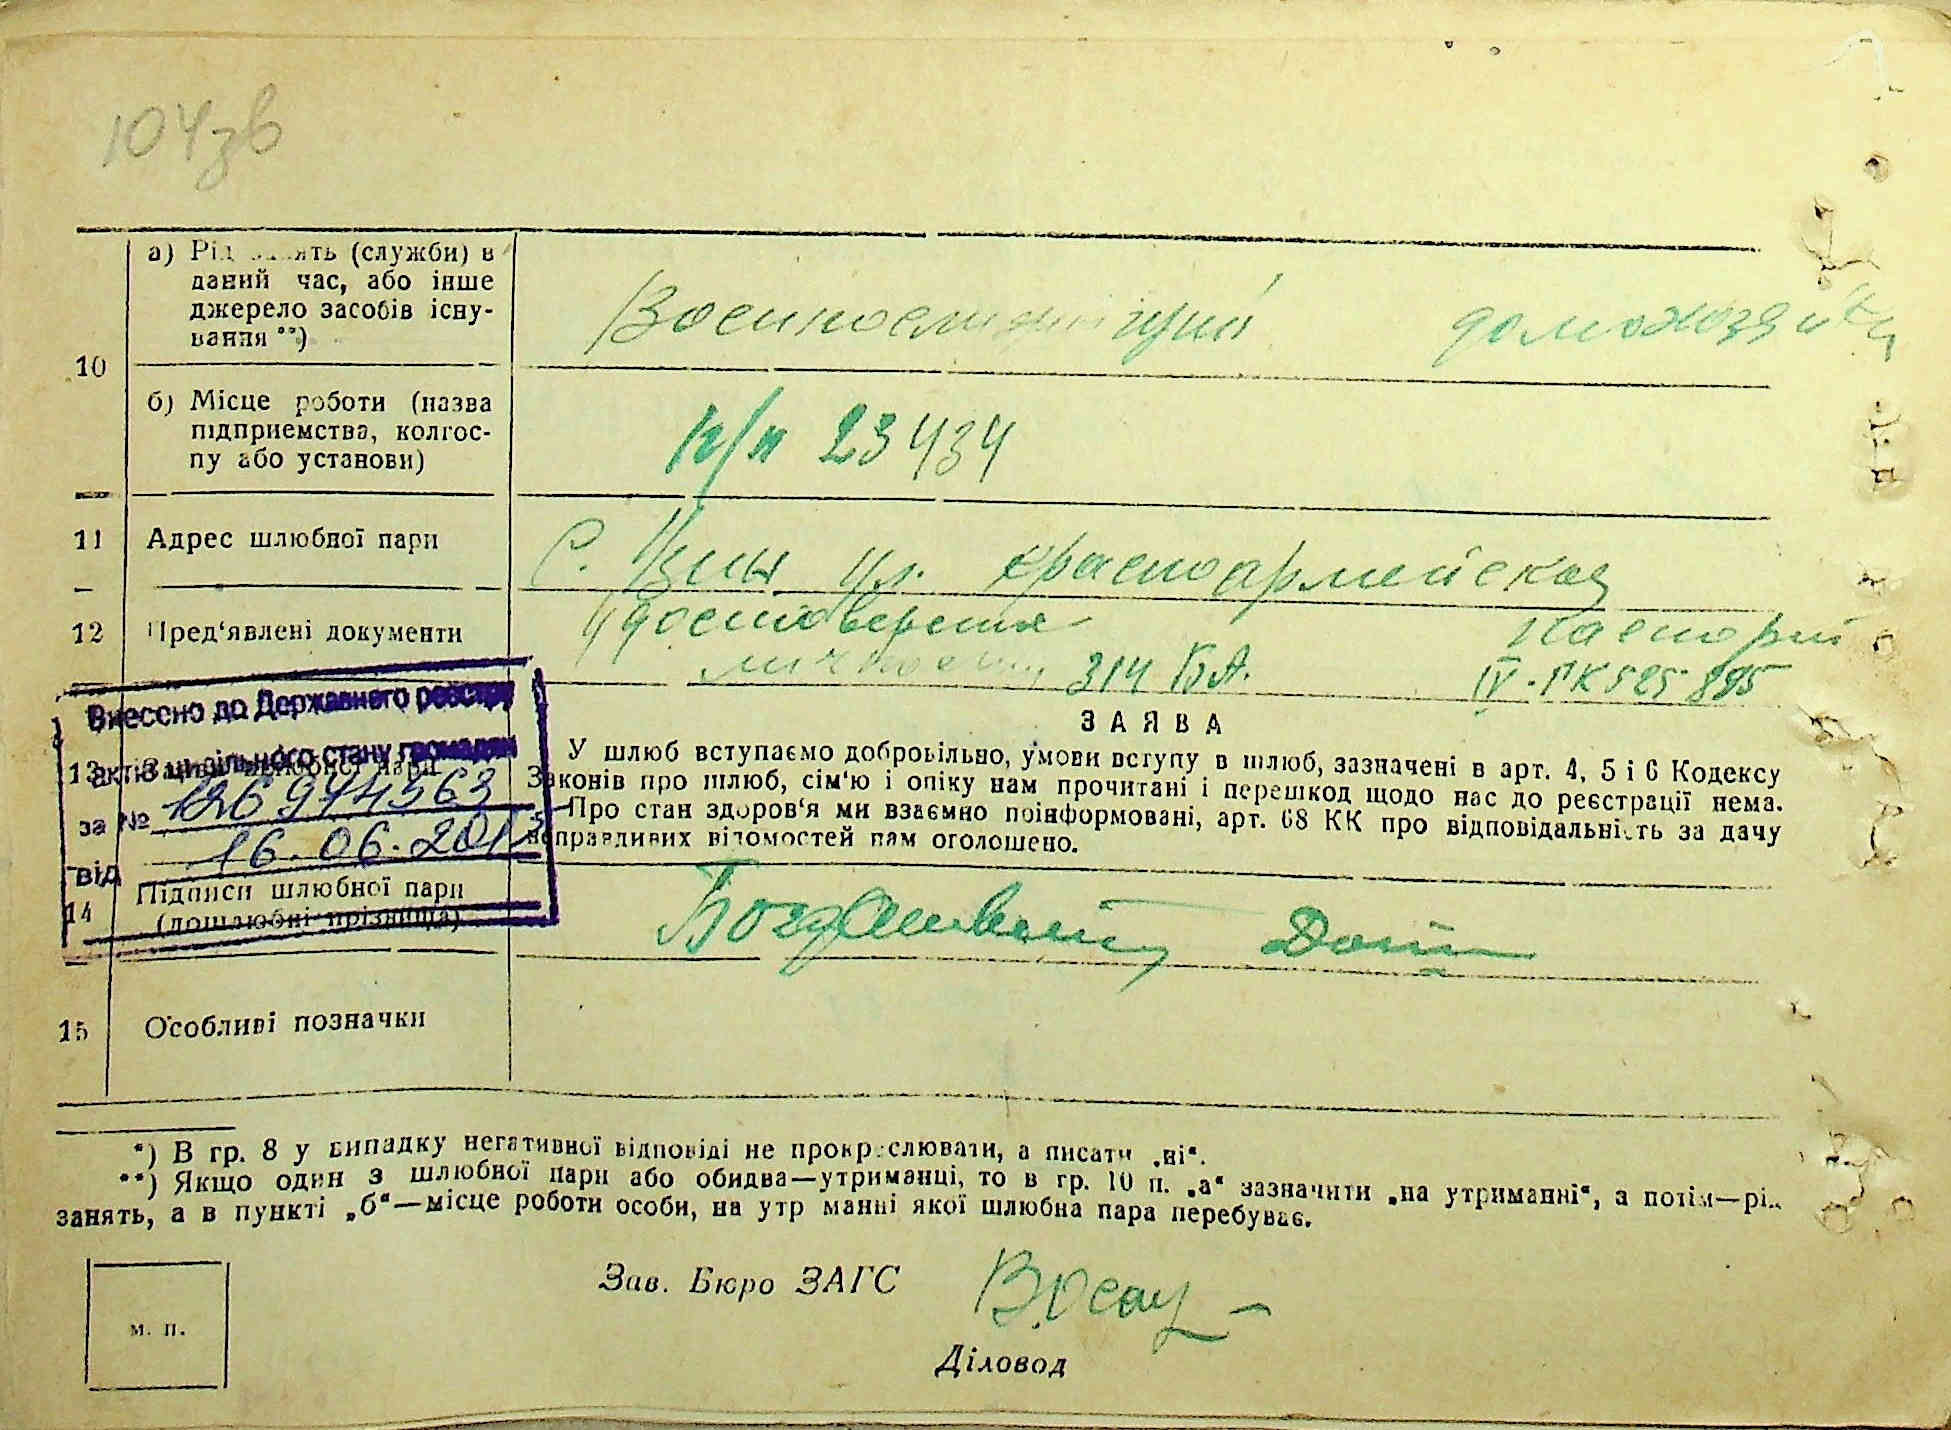 104зв
а) Рід занять (служби) в
даний час, або інше
джерело засобів існу-
вання **)
Военнослужащий домохозяйка
10
б) Місце роботи (назва
підприємства, колгос-
пу або установи)
п/п 23434
11 Адрес шлюбної пари
С. Узин ул. Красноармейская
12 Пред'явлені документи
Удостоверение Паспорт
личности 314 БА. IV-ПК 525 895
Внесено до Державного реєстру
актів цивільного стану громадян
за №
від 16.06.201
13 Заява шлюбної пари
ЗАЯВА
У шлюб вступаємо добровільно, умови вступу в шлюб, зазначені в арт. 4, 5 і 6 Кодексу
Законів про шлюб, сім'ю і опіку нам прочитані і перешкод щодо нас до реєстрації нема.
Про стан здоров'я ми взаємно поінформовані, арт. 68 КК про відповідальність за дачу
неправдивих відомостей нам оголошено.
14 Підписи шлюбної пари
(дошлюбні прізвища)
15 Особливі позначки
*) В гр. 8 у випадку негативної відповіді не прокреслювати, а писати „ні“.
**) Якщо один з шлюбної пари або обидва—утриманці, то в гр. 10 п. „а“ зазначити „на утриманні“, а потім—рід
занять, а в пункті „б“—місце роботи особи, на утриманні якої шлюбна пара перебуває.
Зав. Бюро ЗАГС
м. п.
Діловод